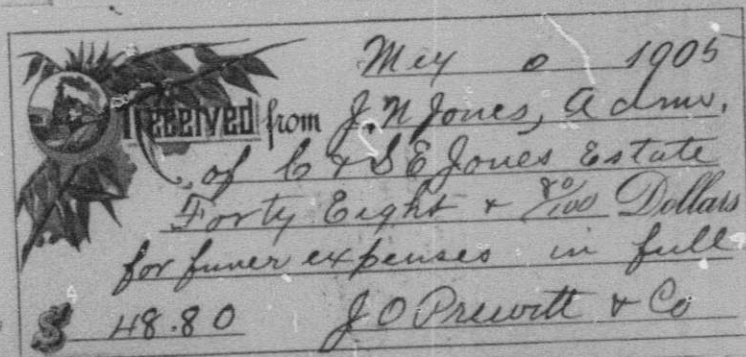 Mey 0 1905
Received from J. N Jones, Admr.
of C & S E Jones Estate
Forty Eight & 80/100 Dollars
for funer expenses in full
$ 48.80 J O Prewitt & Co